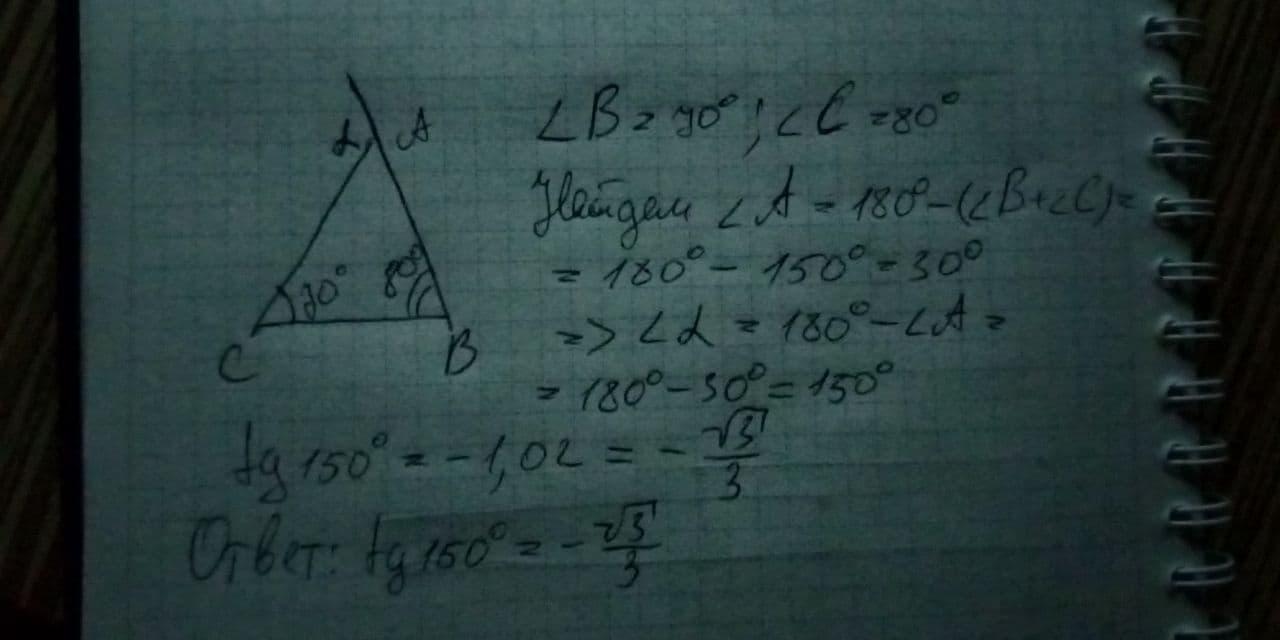 α A
∠B = 70°; ∠C = 80°
Найдем ∠A = 180° – (∠B + ∠C) =
= 180° – 150° = 30°
70° 80°
=> ∠α = 180° – ∠A =
C B
= 180° – 30° = 150°
tg 150° = –1,02 = – √3/3
Ответ: tg 150° = – √3/3